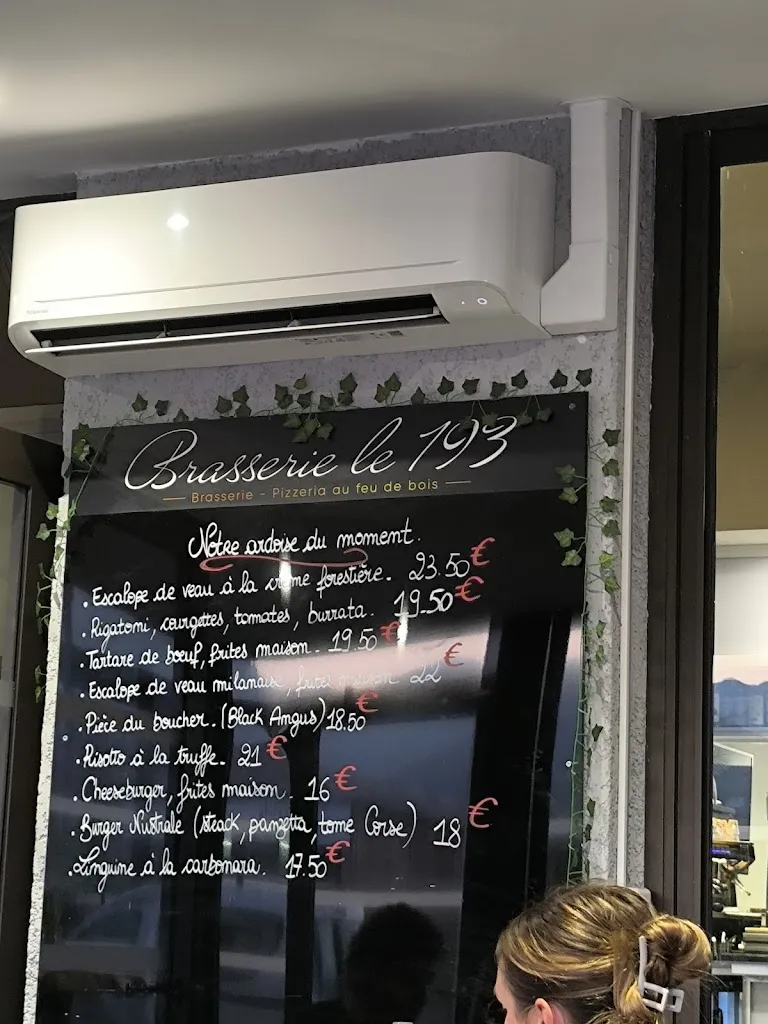 Brasserie le 193
Brasserie - Pizzeria au feu de bois
Notre ardoise du moment.
. Escalope de veau à la crème forestière. 23.50€
. Rigatoni, courgettes, tomates, burrata. 19.50€
. Tartare de bœuf, frites maison. 19.50€
. Escalope de veau milanaise, frites maison. 22€
. Pièce du boucher. (Black Angus) 18.50€
. Risotto à la truffe. 21€
. Cheeseburger, frites maison. 16€
. Burger Nustrale (steack, panzetta, tome Corse) 18€
. Linguine à la carbonara. 17.50€